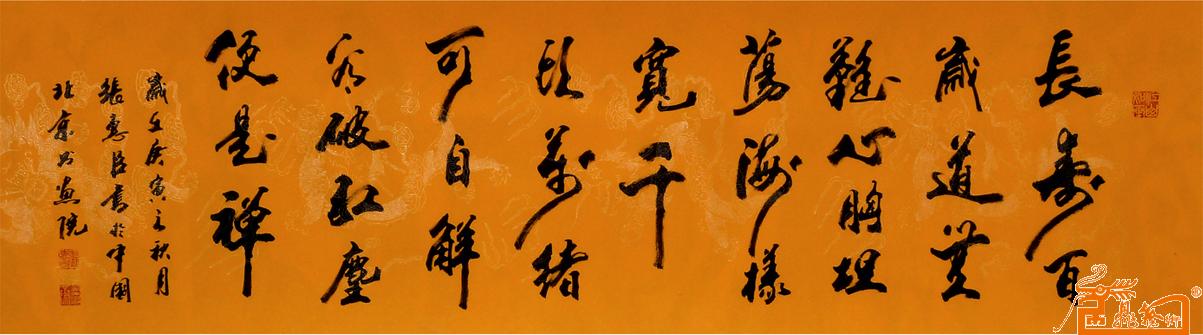 長壽百
歲道無
難心胸坦
蕩海樣
寬千
頭萬緒
可自解
看破紅塵
便是禅
歲在庚寅之秋月
張惠臣書於中國
北京书画院